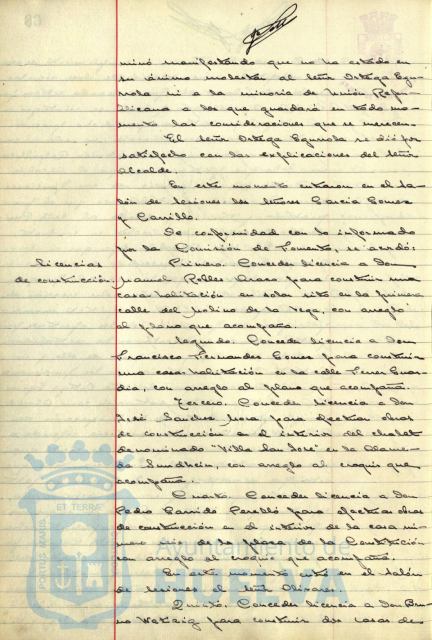 minó manifestando que no ha estado en
su ánimo molestar al Señor Ortega Equ
ni a la minoria de Unión Repu-
blicana a los que guardará en todo mo-
mento las consideraciones que se merecen.
El Señor Ortega se dió por
satisfecho con las explicaciones del Señor
Alcalde.
En este momento entraron en el Sa-
lón de Sesiones los Señores Garcia Gomez
y Carrillo.
De conformidad con lo informado
por la Comisión de Fomento, se acordó:
Licencias
de construcción.
Primero. Conceder licencia a Don
Manuel Robles para construir una
casa habitación en solar sito en la primera
calle del Molino de la Vega, con arreglo
al plano que acompaña.
Segundo. Conceder licencia a Don
Francisco Fernandez Gomez para construir
una casa habitación en la calle
con arreglo al plano que acompaña.
Tercero. Conceder licencia a Don
José Sanchez Mora, para efectuar obras
de construcción en el interior del chalet
denominado "Villa San José" en la Alame-
da Sundheim, con arreglo al croquis que
acompaña.
Cuarto. Conceder licencia a Don
Pedro Garrido Perelló para efectuar obras
de construcción en el interior de la casa nú-
mero seis de la plaza de la Constitución
con arreglo al croquis que acompaña.
En este momento entró en el Salón
de Sesiones el Señor Olivares.
Quinto. Conceder licencia a Don Bru-
no para construir dos casas de
PORTUS MARIS ET TERRAE
Ayuntamiento de
HUELVA